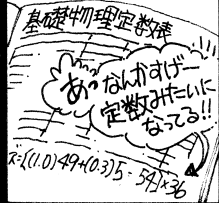 基礎物理定数表
あっ
なんかすげー
定数みたいに
なってる!!
=[(1.0)49+(0.3)5-54]×36